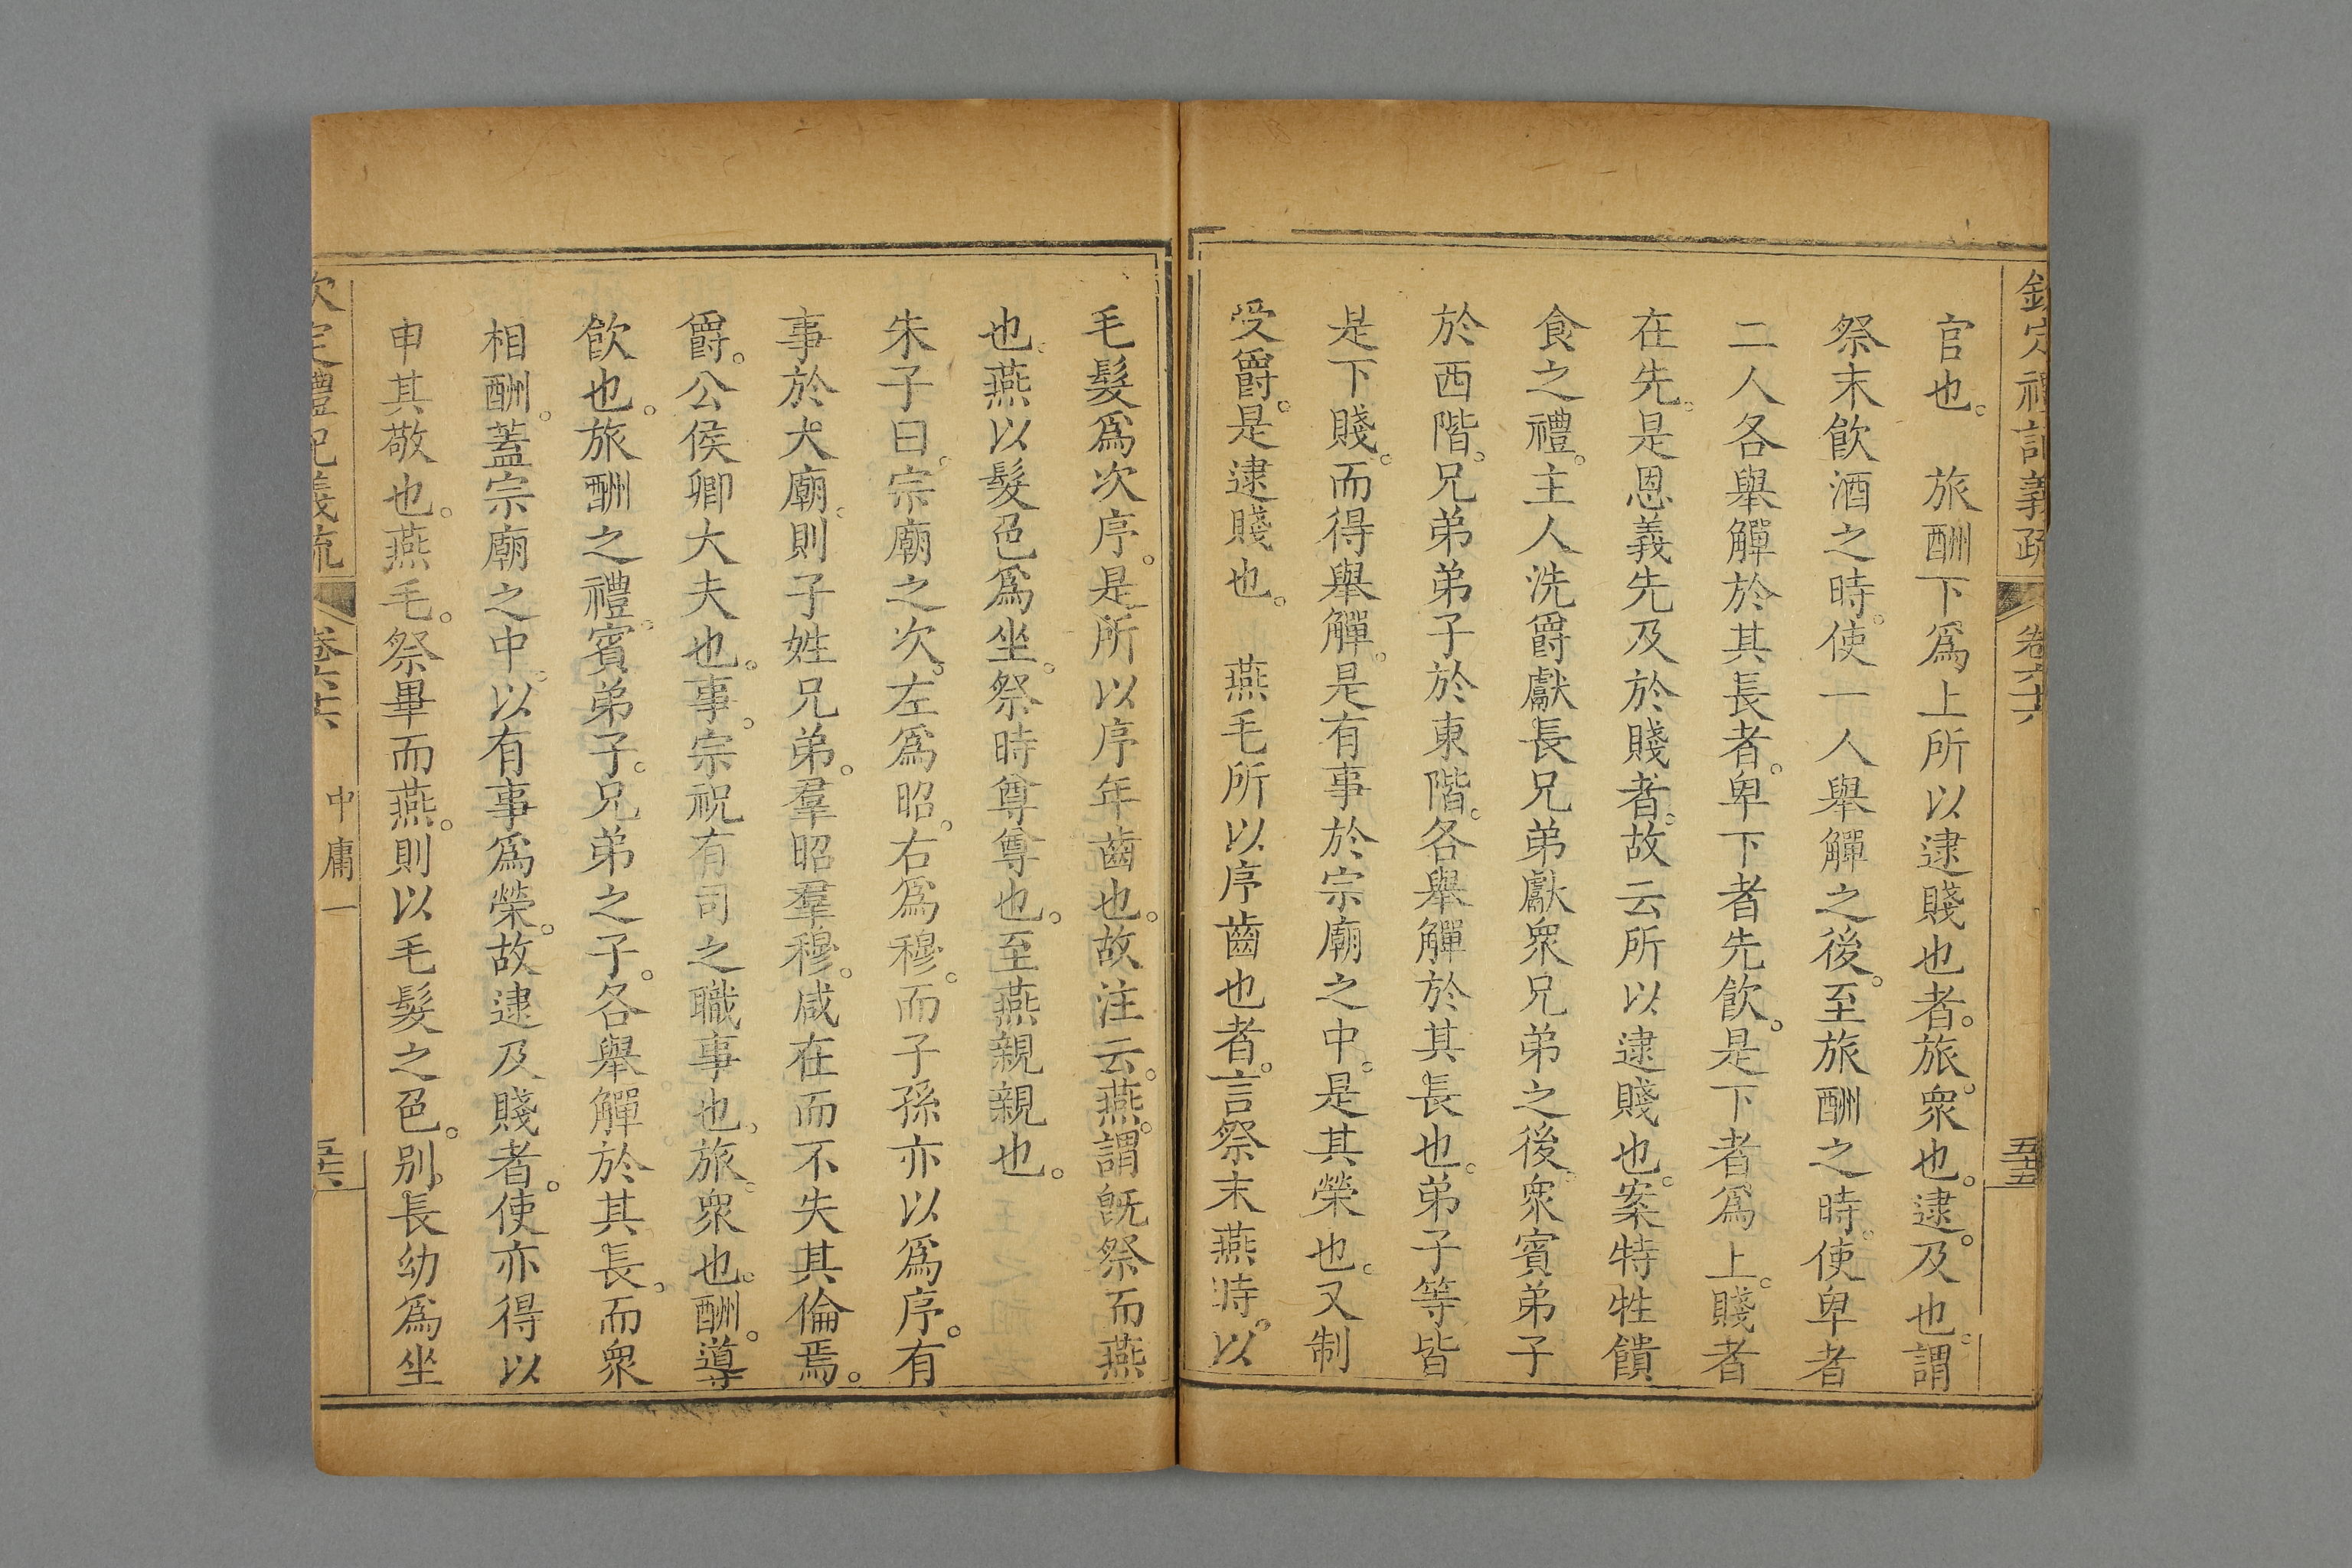 欽定禮記義疏 卷六十六 五十五
官也。 旅酬下爲上所以逮賤也者。旅。衆也。逮。及也。謂
祭末飲酒之時。使一人舉觶之後。至旅酬之時。使卑者
二人各舉觶於其長者。卑下者先飲。是下者爲上。賤者
在先。是恩義先及於賤者。故云所以逮賤也。案特牲饋
食之禮。主人洗爵獻長兄弟獻衆兄弟之後。衆賓弟子
於西階。兄弟弟子於東階。各舉觶於其長也。弟子等皆
是下賤。而得舉觶。是有事於宗廟之中。是其榮也。又制
受爵。是逮賤也。 燕毛所以序齒也者。言祭末燕時。以
毛髮爲次序。是所以序年齒也。故注云。燕。謂旣祭而燕
也。燕以髮色爲坐。祭時尊尊也。至燕親親也。
朱子曰。宗廟之次。左爲昭。右爲穆。而子孫亦以爲序。有
事於犬廟。則子姓兄弟。羣昭羣穆。咸在而不失其倫焉。
爵。公侯卿大夫也。事。宗祝有司之職事也。旅。衆也。酬。導
飲也。旅酬之禮。賓弟子。兄弟之子。各舉觶於其長。而衆
相酬。蓋宗廟之中。以有事爲榮。故逮及賤者。使亦得以
申其敬也。燕毛。祭畢而燕。則以毛髮之色。别。長幼爲坐
欽定禮記義疏 卷六十六 中庸一 五十六